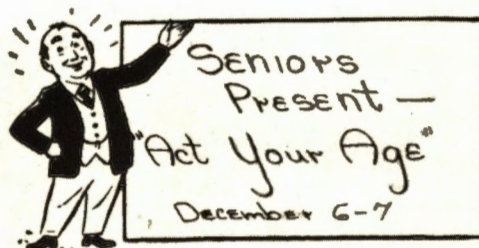 Seniors
Present —
"Act Your Age"
December 6-7